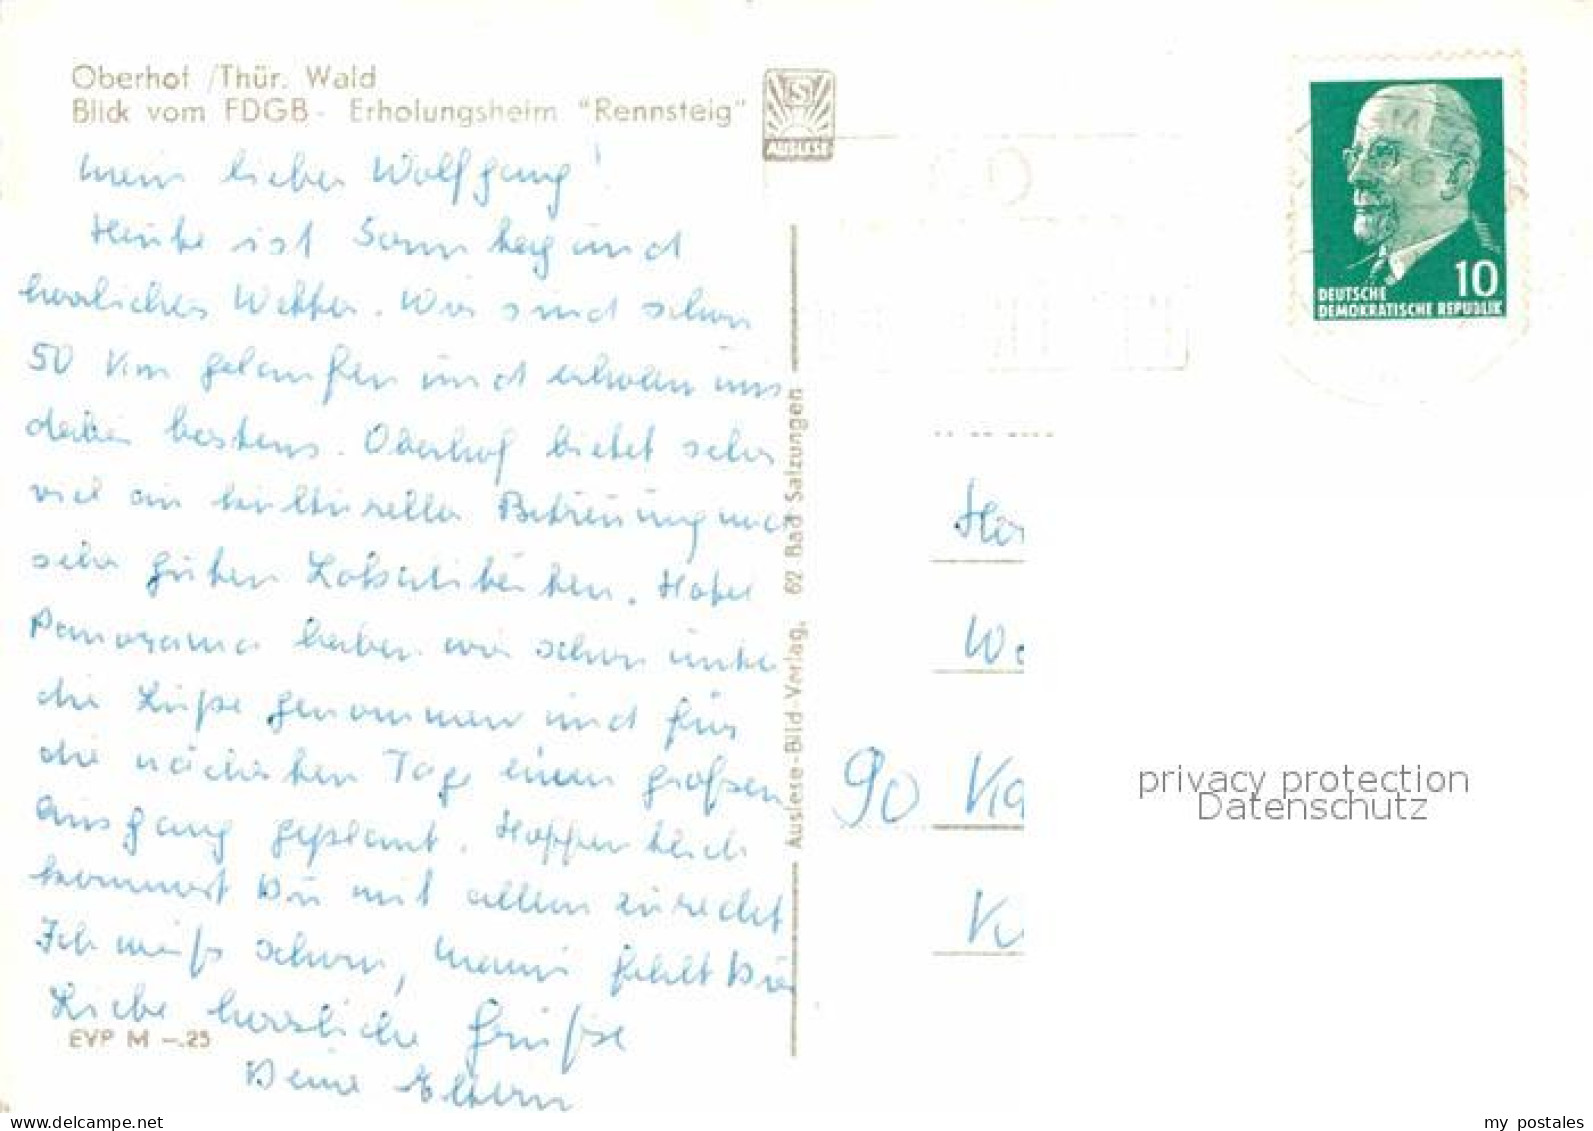 Oberhof /Thür. Wald
Blick vom FDGB - Erholungsheim "Rennsteig"
AUSLESE
Mein lieber Wolfgang!
Heute ist Sonntag und
herrliches Wetter. Wir sind schon
50 km gelaufen und erholen uns
dabei bestens. Oberhof bietet sehr
viel an kultureller Betreuung und
sehr guten Lokalitäten. Hotel
Panorama haben wir schon unter
die Lupe genommen und für
die nächsten Tage einen großen
Ausgang geplant. Hoffentlich
kommst Du mit allem zurecht
Ich weiß schon, Mami fehlt Dir
Liebe herzliche Grüße
Deine Eltern
EVP M -.25
Auslese-Bild-Verlag, 62 Bad Salzungen
10
DEUTSCHE
DEMOKRATISCHE REPUBLIK
90
privacy protection
Datenschutz
www.delcampe.net
my_postales